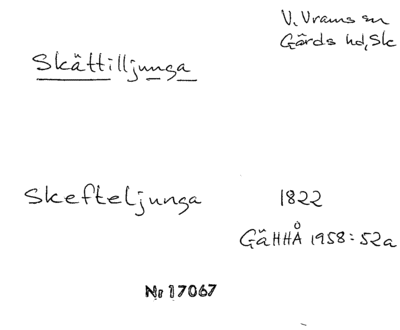 V. Vrams sn
Gärds hd, Sk
Skättilljunga
Skefteljunga 1822
GäHHÅ 1958:52a
Nr 17067